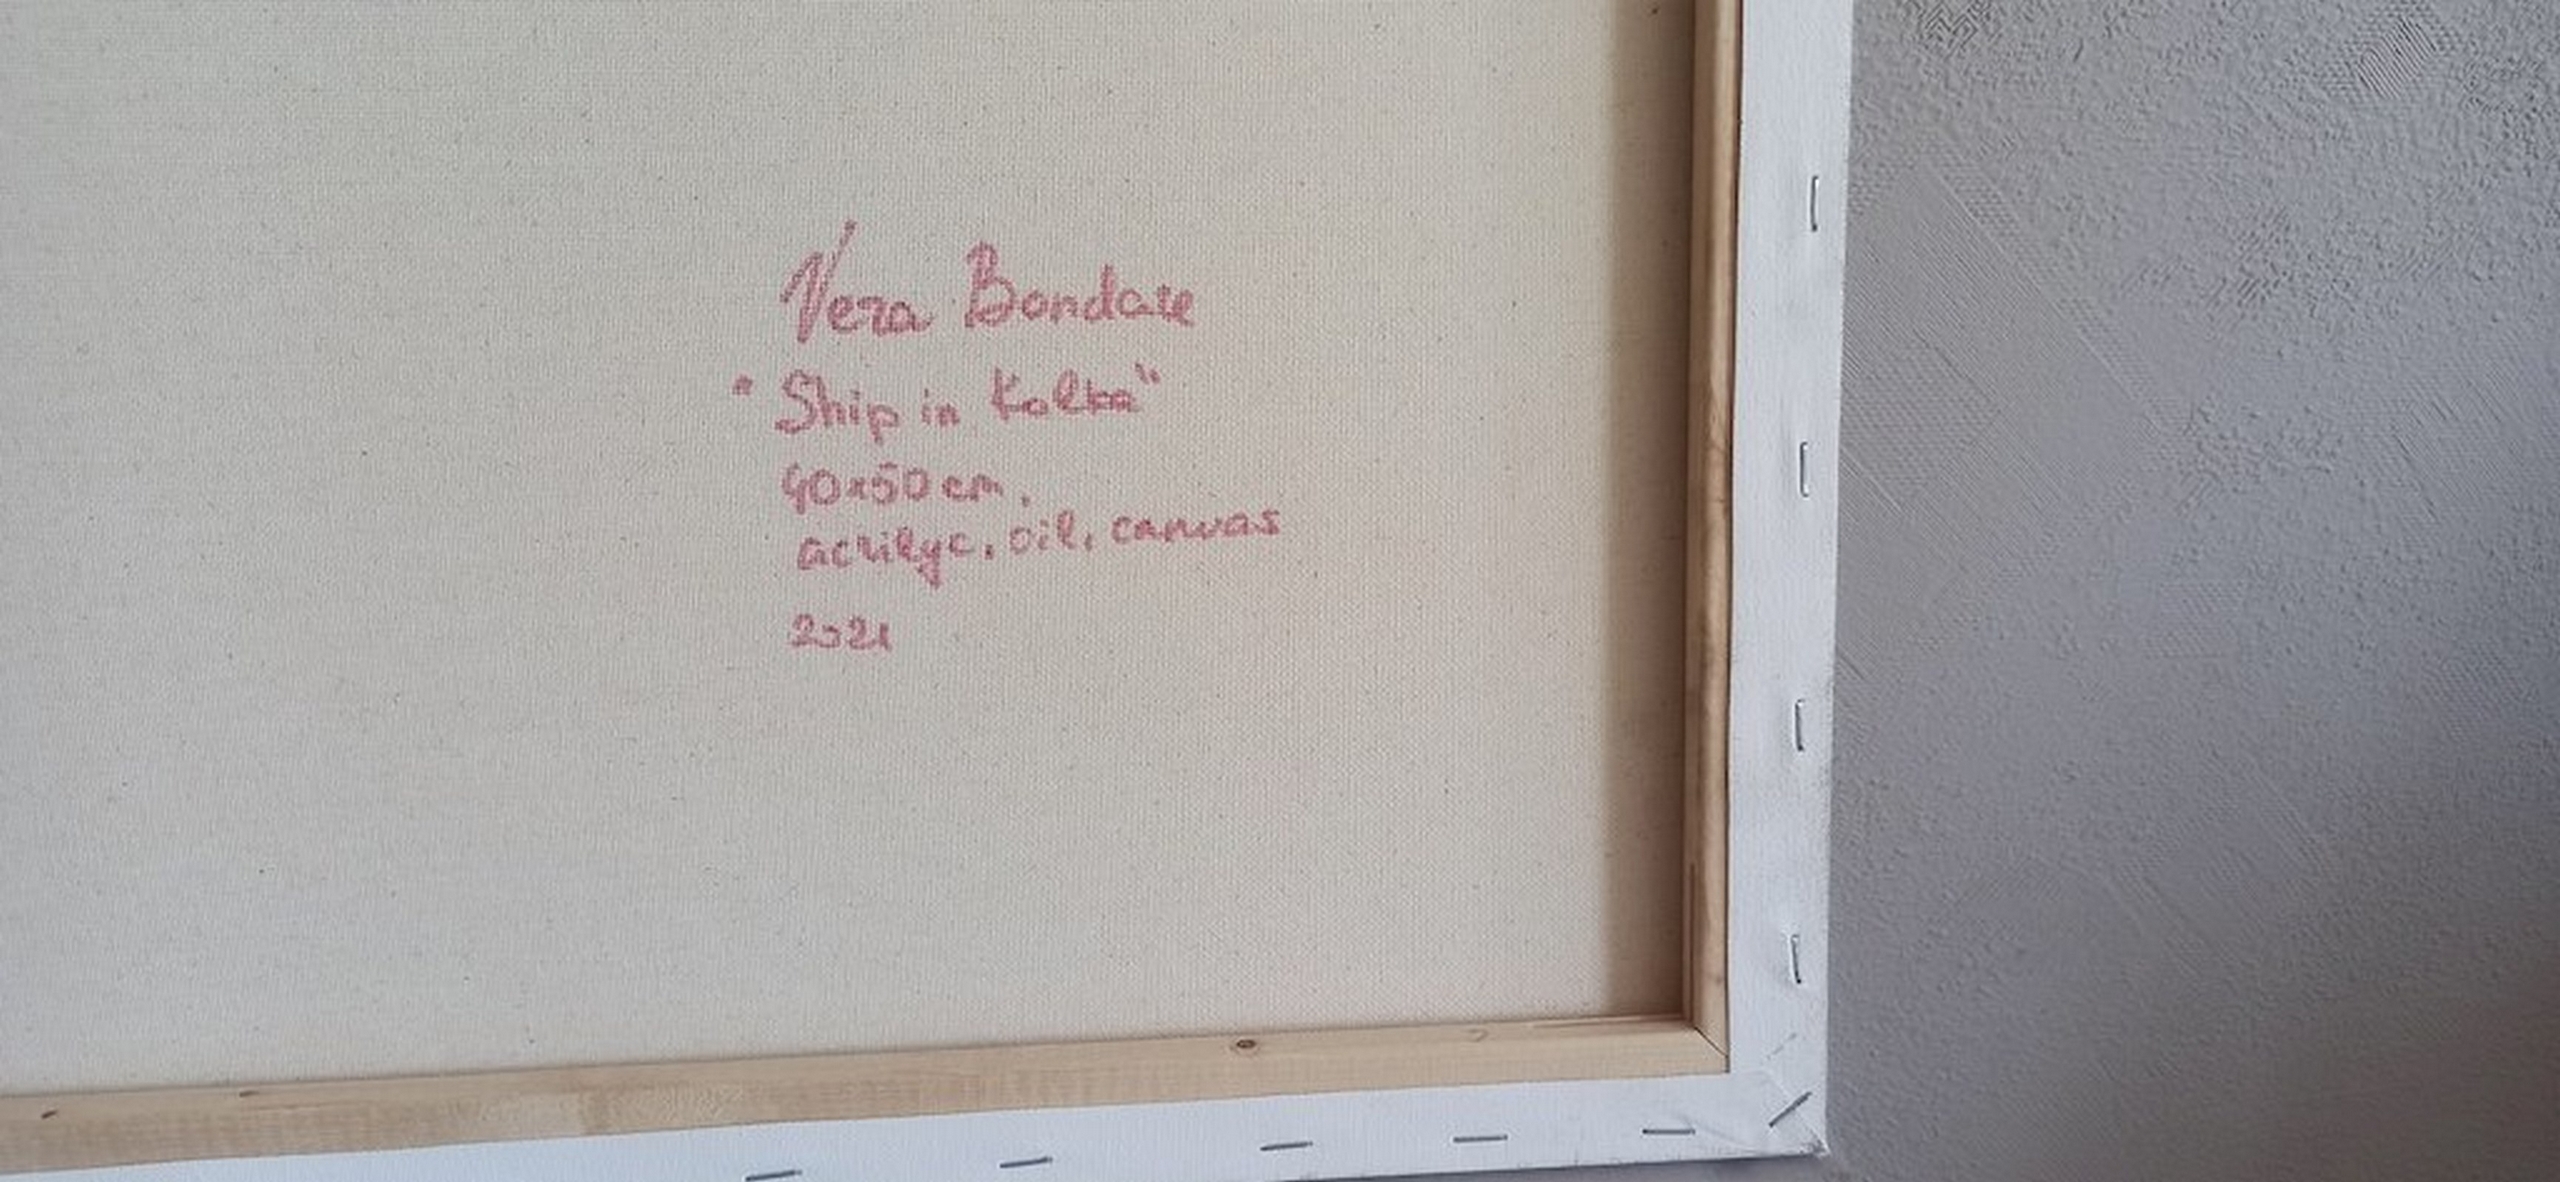 Vera Bondare
"Ship in Kolka"
40x50 cm,
acrilyc, oil, canvas
2021